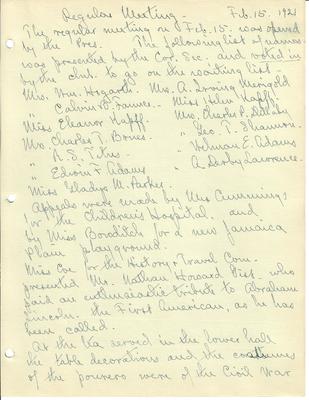 Regular Meeting - Feb. 15. 1921
The regular meeting on Feb. 15. was opened
by the Pres. The following list of names
was presented by the Cor. Sec. and voted in
by the club to go on the waiting list -
Mrs. Wm. Hogarth. Mrs. A. Irving Merigold
" Calvin Miss Helen Kapff.
Miss Eleanor Kapff. Mrs. Charles P.
Mrs. Charles T. Bones. " Geo. T. Shannon.
" A. S. Titus. " Velman E. Adams
" Edwin F. Adams " A. Derby Lawrence.
Miss Gladys M. Parker.
Appeals were made by Mrs Cummings
for the Children's Hospital, and
by Miss Boroditch for a new Jamaica
Plain playground.
Miss Coe for the History & Travel Com.
presented Mr. Nathan Howard Gist. who
paid an enthusiastic tribute to Abraham
Lincoln. the First American, as he has
been called.
At the tea served in the lower hall
the table decorations and the costumes
of the pourers were of the Civil War